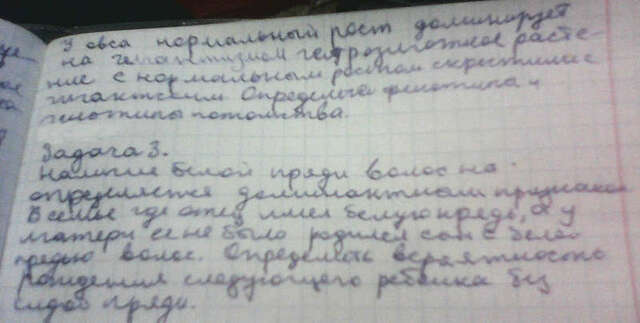 У овса нормальный рост доминирует
на гигантизмом гетрозиготное расте-
ние с нормальным ростом скрестили с
гигантским. Определите фенотипы и
генотипы потомства.
Задача 3.
Наличие белой пряди волос на
определяется доминантным признаком
В семье где отец имел белую прядь, а у
матери её не было родился сын с белой
прядью волос. Определить вероятность
рождения следующего ребенка без
седой пряди.